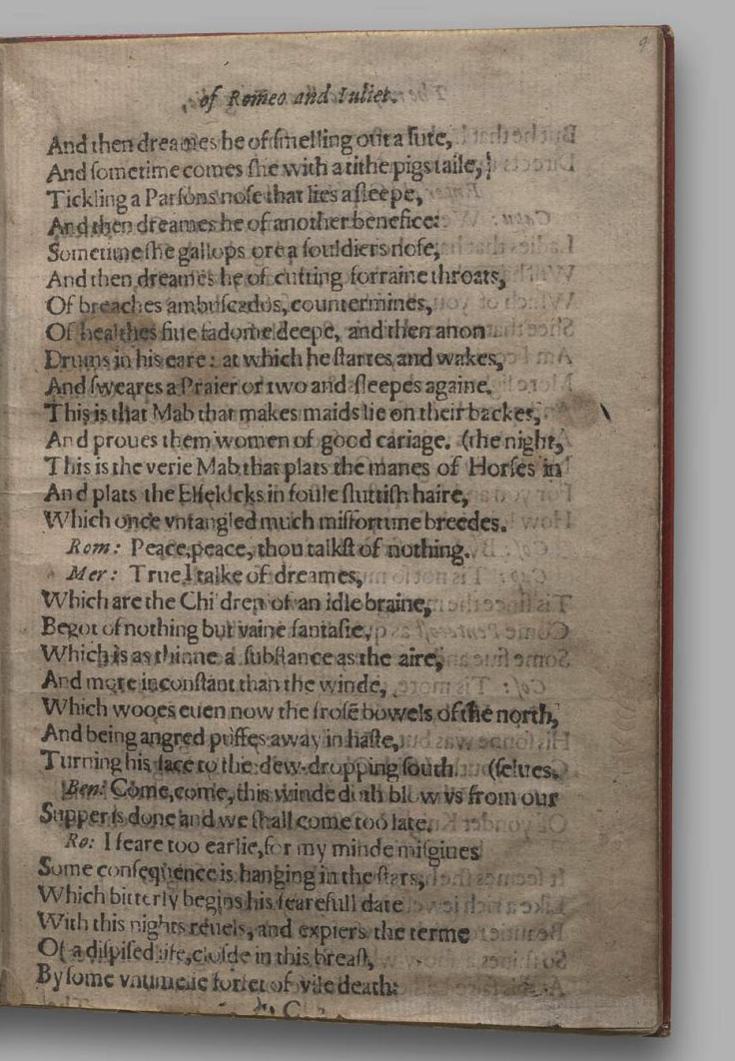 9
of Romeo and Iuliet.
And then dreames he of smelling out a sute,
And sometime comes she with a tithe pigs taile,
Tickling a Parsons nose that lies asleepe,
And then dreames he of another benefice:
Sometime she gallops ore a souldiers nose,
And then dreames he of cutting forraine throats,
Of breaches ambuscados, countermines,
Of healthes fiue fadome deepe, and then anon
Drums in his eare: at which he startes and wakes,
And sweares a Praier or two and sleepes againe.
This is that Mab that makes maids lie on their backes,
And proues them women of good cariage. (the night,
This is the verie Mab that plats the manes of Horses in
And plats the Elfelocks in foule sluttish haire,
Which once vntangled much misfortune breedes.
Rom: Peace, peace, thou talkst of nothing.
Mer: True I talke of dreames,
Which are the Children of an idle braine,
Begot of nothing but vaine fantasie,
Which is as thinne a substance as the aire,
And more inconstant than the winde,
Which wooes euen now the frosē bowels of the north,
And being angred puffes away in haste,
Turning his face to the dew-dropping south. (selues.
Ben: Come, come, this winde doth blow vs from our
Supper is done and we shall come too late.
Ro: I feare too earlie, for my minde misgiues
Some consequence is hanging in the stars,
Which bitterly begins his fearefull date
With this nights reuels, and expiers the terme
Of a dispised life, closde in this breast,
By some vntimelie forfet of vile death:
C